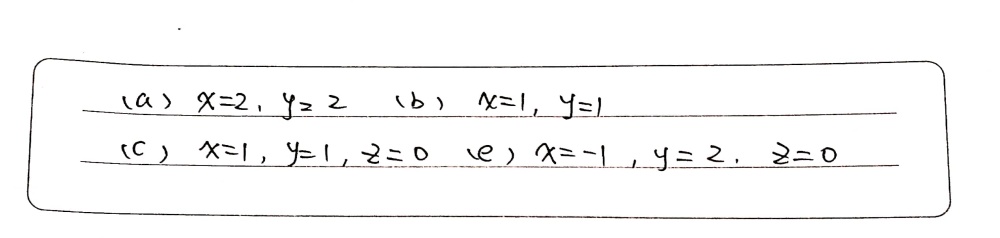 (a) x=2, y=2 (b) x=1, y=1
(c) x=1, y=1, z=0 (e) x=-1, y=2, z=0